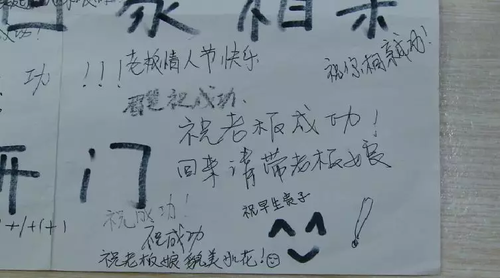 回家相亲
成功!
功
!!!老板情人节快乐
祝你相亲成功!
祝成功.
祝老板成功!
回来请带老板娘
开门
祝早生贵子
祝成功!
祝成功
祝老板娘貌美如花!